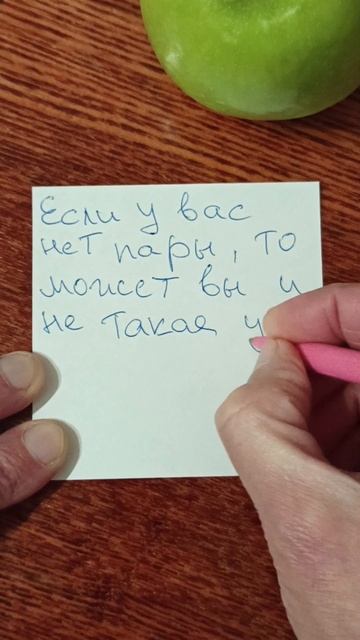 Если у вас
нет пары, то
может вы и
не такая у